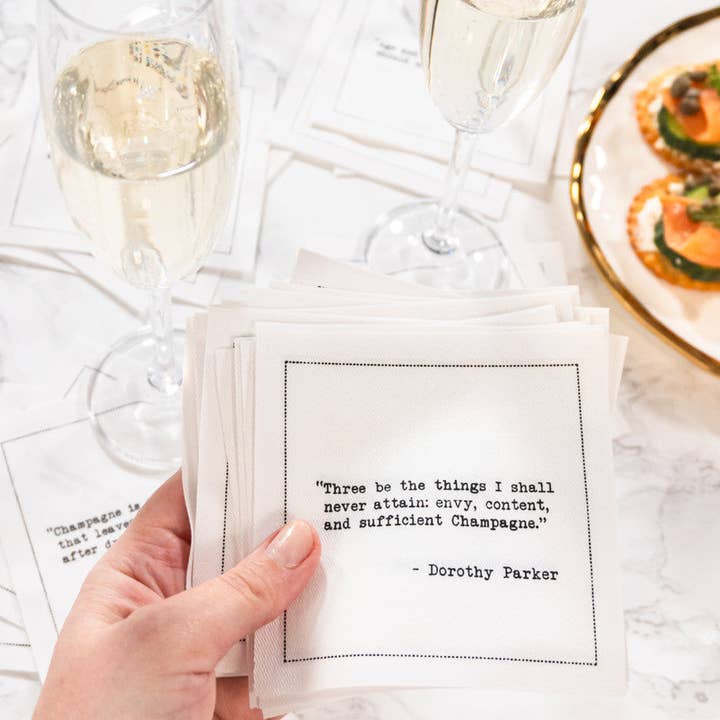 "Three be the things I shall
never attain: envy, content,
and sufficient Champagne."
- Dorothy Parker
"Champagne is
that leaves
after d